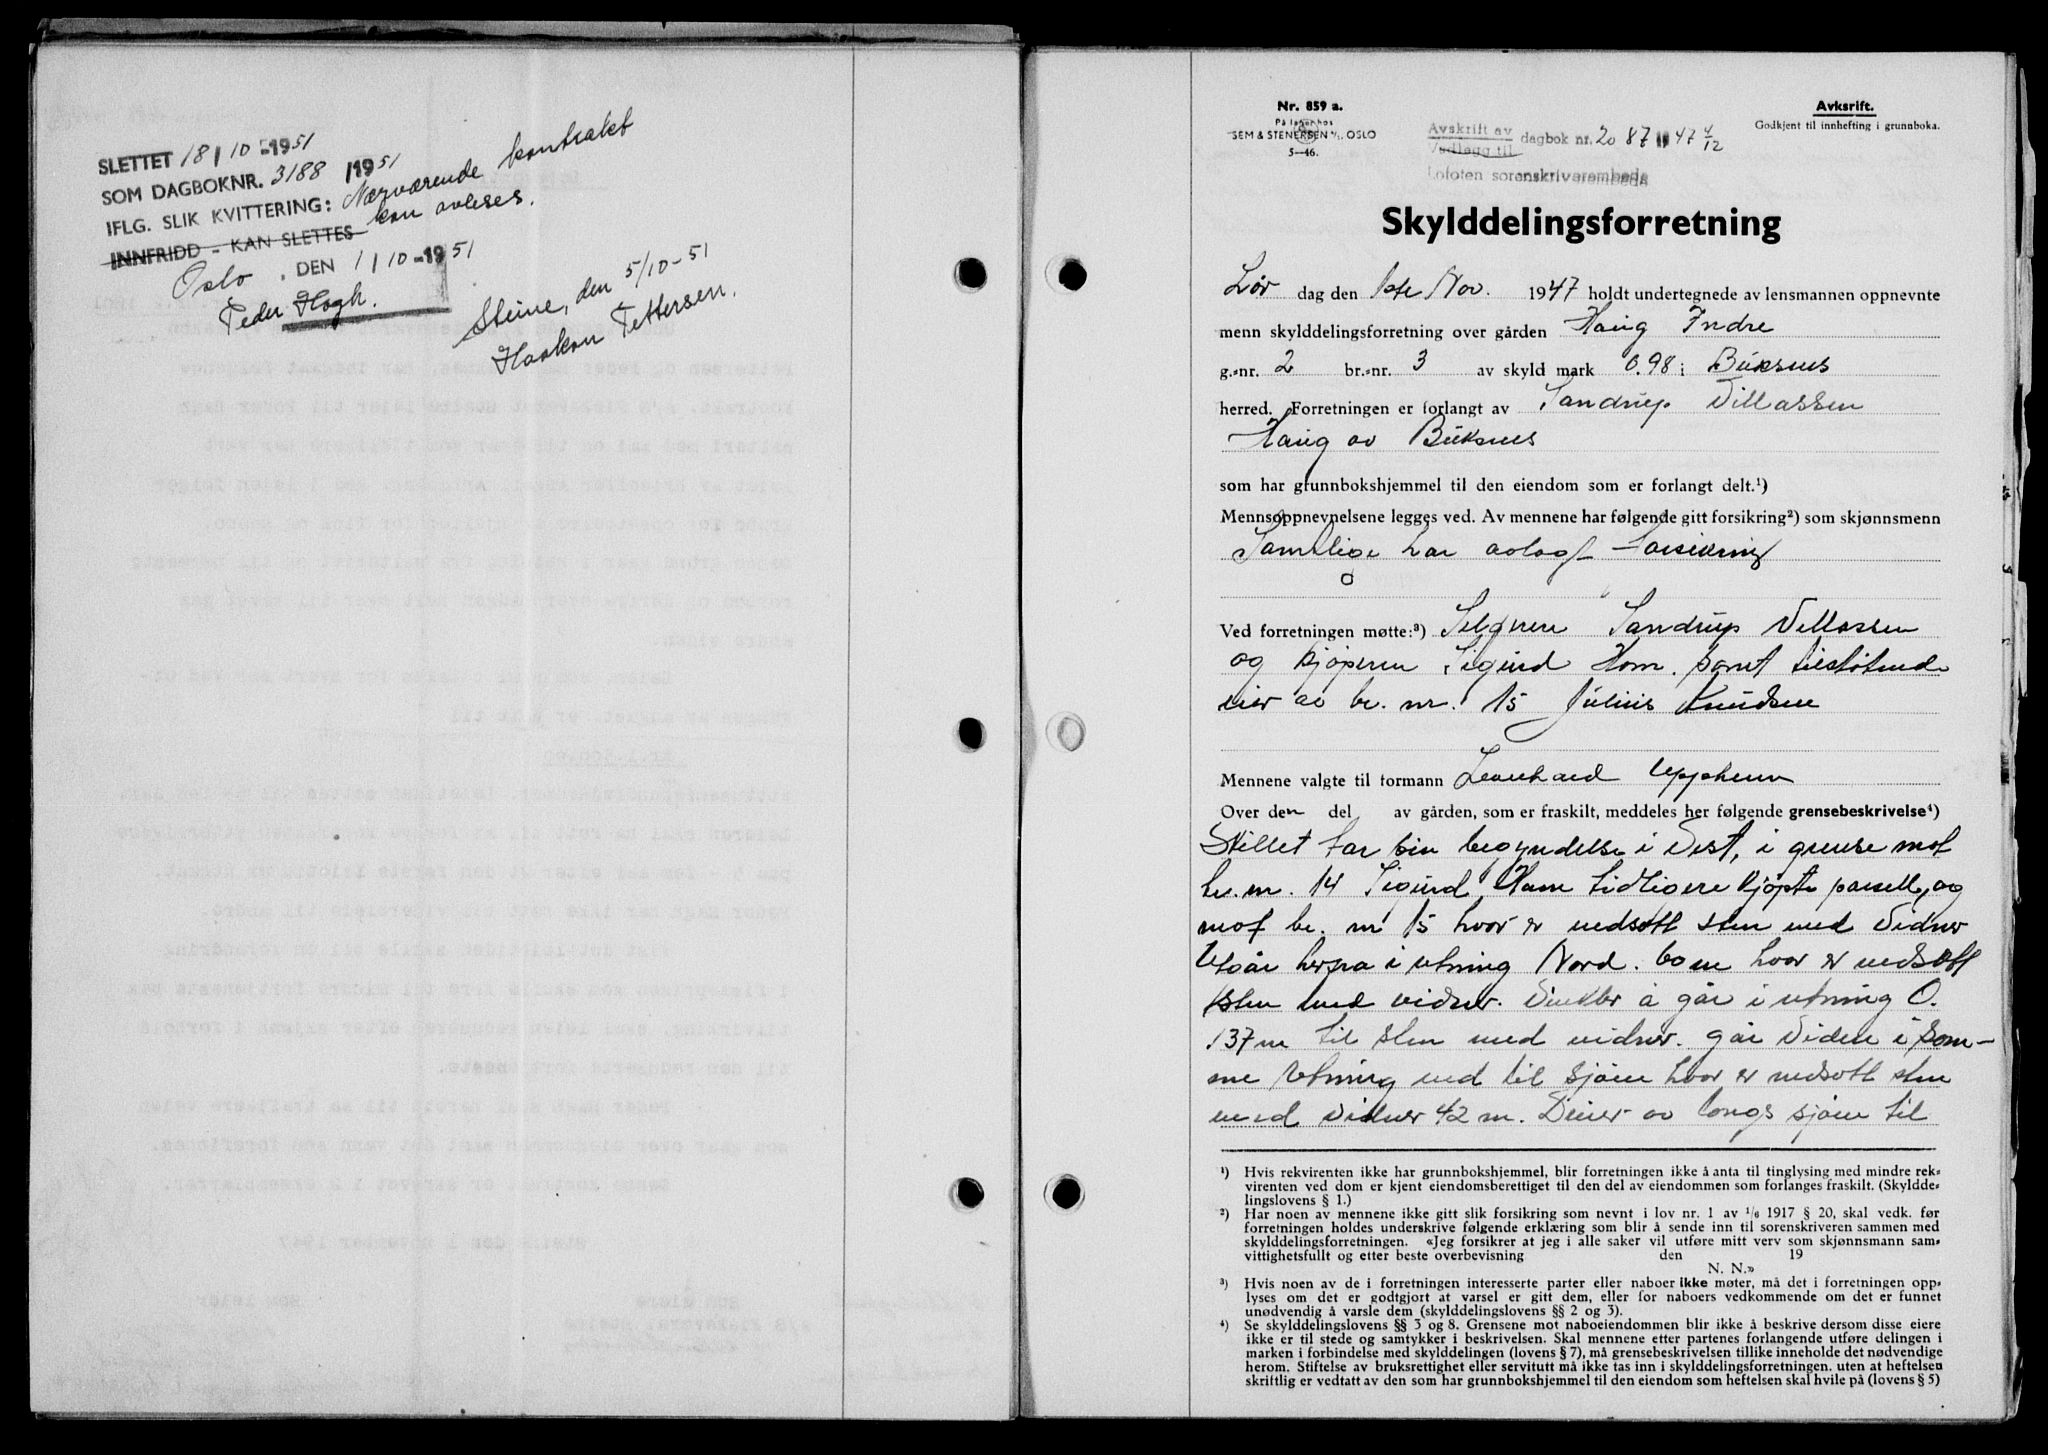 SLETTET 18/10-1951
SOM DAGBOKNR. 3188/1951
IFLG. SLIK KVITTERING: Nærværende kontrakt
kan avleses.
INNFRIDD - KAN SLETTES
Oslo, DEN 1/10-1951
Peder Hagh.
Steine, den 5/10-51
Haakon Pettersen.
Nr. 859 a.
På lager hos
SEM & STENERSEN A/S, OSLO
5-46.
Avskrift av
Vedlegg til
dagbok nr. 2087 1947 4/12
Lofoten sorenskriverembede
Avksrift.
Godkjent til innhefting i grunnboka.
Skylddelingsforretning
Lør dag den 1ste Nov. 1947 holdt undertegnede av lensmannen oppnevnte
menn skylddelingsforretning over gården Haug Indre
g.-nr. 2 br.-nr. 3 av skyld mark 0.98 i Buksnes
herred. Forretningen er forlangt av Sandrup Villassen
Haug av Buksnes
som har grunnbokshjemmel til den eiendom som er forlangt delt.¹)
Mennsoppnevnelsene legges ved. Av mennene har følgende gitt forsikring²) som skjønnsmenn
Samtlige har avlagt forsikring
Ved forretningen møtte:³) Selgeren Sandrup Villassen
og kjøperen Sigurd Horn. samt tilstøtende
eier av br. nr. 15 Julius Knudsen
Mennene valgte til formann Leonhard Uppheim
Over den del av gården, som er fraskilt, meddeles her følgende grensebeskrivelse⁴)
Skillet tar sin begyndelse i Vest, i grense mot
br. nr. 14 Sigurd Horn tidligere kjøpte parsell, og
mot br. nr 15 hvor er nedsatt sten med Vidner
Utgår herfra i retning Nord. 60 m hvor er nedsatt
sten med vidner. Vinkler å går i retning O.
137 m til sten med vidner. går Videre i sam-
me retning ned til sjøen hvor er nedsatt sten
med vidner 42 m. Deier av langs sjøen til
¹) Hvis rekvirenten ikke har grunnbokshjemmel, blir forretningen ikke å anta til tinglysing med mindre rek-
virenten ved dom er kjent eiendomsberettiget til den del av eiendommen som forlanges fraskilt. (Skyldde-
lingslovens § 1.)
²) Har noen av mennene ikke gitt slik forsikring som nevnt i lov nr. 1 av 1/6 1917 § 20, skal vedk. før
forretningen holdes underskrive følgende erklæring som blir å sende inn til sorenskriveren sammen med
skylddelingsforretningen. «Jeg forsikrer at jeg i alle saker vil utføre mitt verv som skjønnsmann sam-
vittighetsfullt og etter beste overbevisning den 19
N. N.»
³) Hvis noen av de i forretningen interesserte parter eller naboer ikke møter, må det i forretningen opp-
lyses om det er godtgjort at varsel er gitt dem, eller for naboers vedkommende om det er funnet
unødvendig å varsle dem (skylddelingslovens §§ 2 og 3).
⁴) Se skylddelingslovens §§ 3 og 8. Grensene mot naboeiendommen blir ikke å beskrive dersom disse eiere
ikke er til stede og samtykker i beskrivelsen. Skal mennene etter partenes forlangende utføre delingen i
marken i forbindelse med skylddelingen (lovens § 7), må grensebeskrivelsen tillike inneholde det nødvendige
herom. Stiftelse av bruksrettighet eller servitutt må ikke tas inn i skylddelingsforretningen. uten at heftelsen
skriftlig er vedtatt av den som har grunnbokshjemmel til den eiendom som heftelsen skal hvile på (lovens § 5)